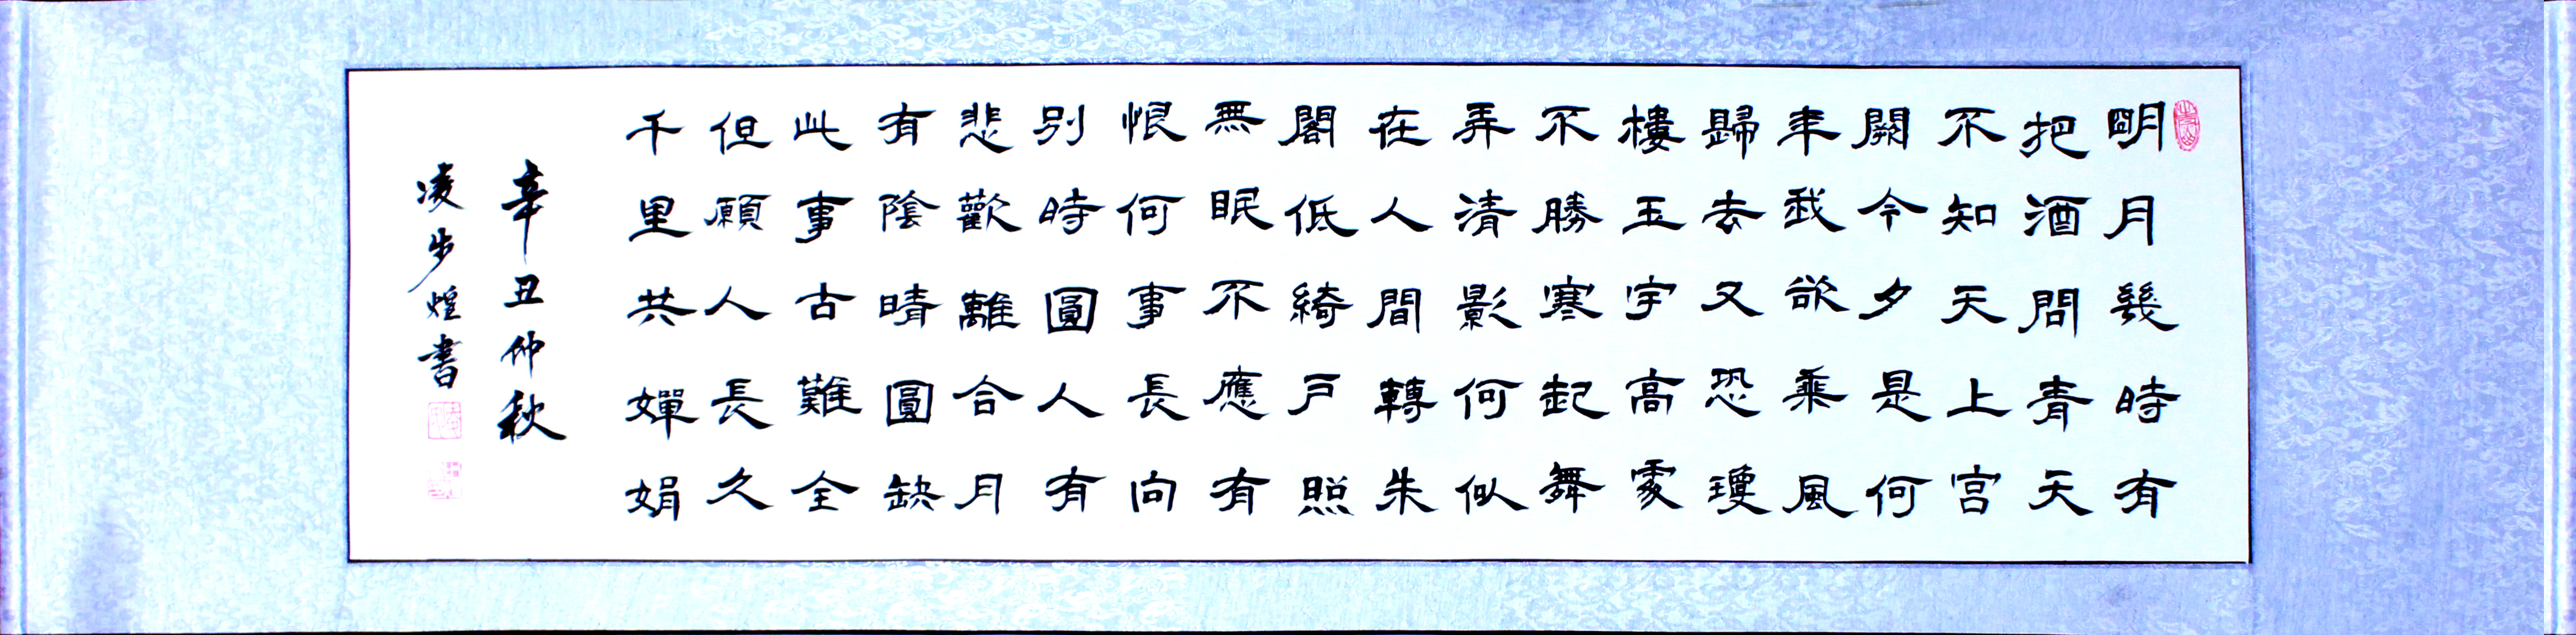 明月幾時有
把酒問青天
不知天上宫
闕今夕是何
年我欲乘風
歸去又恐瓊
樓玉宇高處
不勝寒起舞
弄清影何似
在人間轉朱
閣低綺戸照
無眠不應有
恨何事長向
別時圓人有
悲歡離合月
有陰晴圓缺
此事古難全
但願人長久
千里共嬋娟
辛丑仲秋
凌步煌書